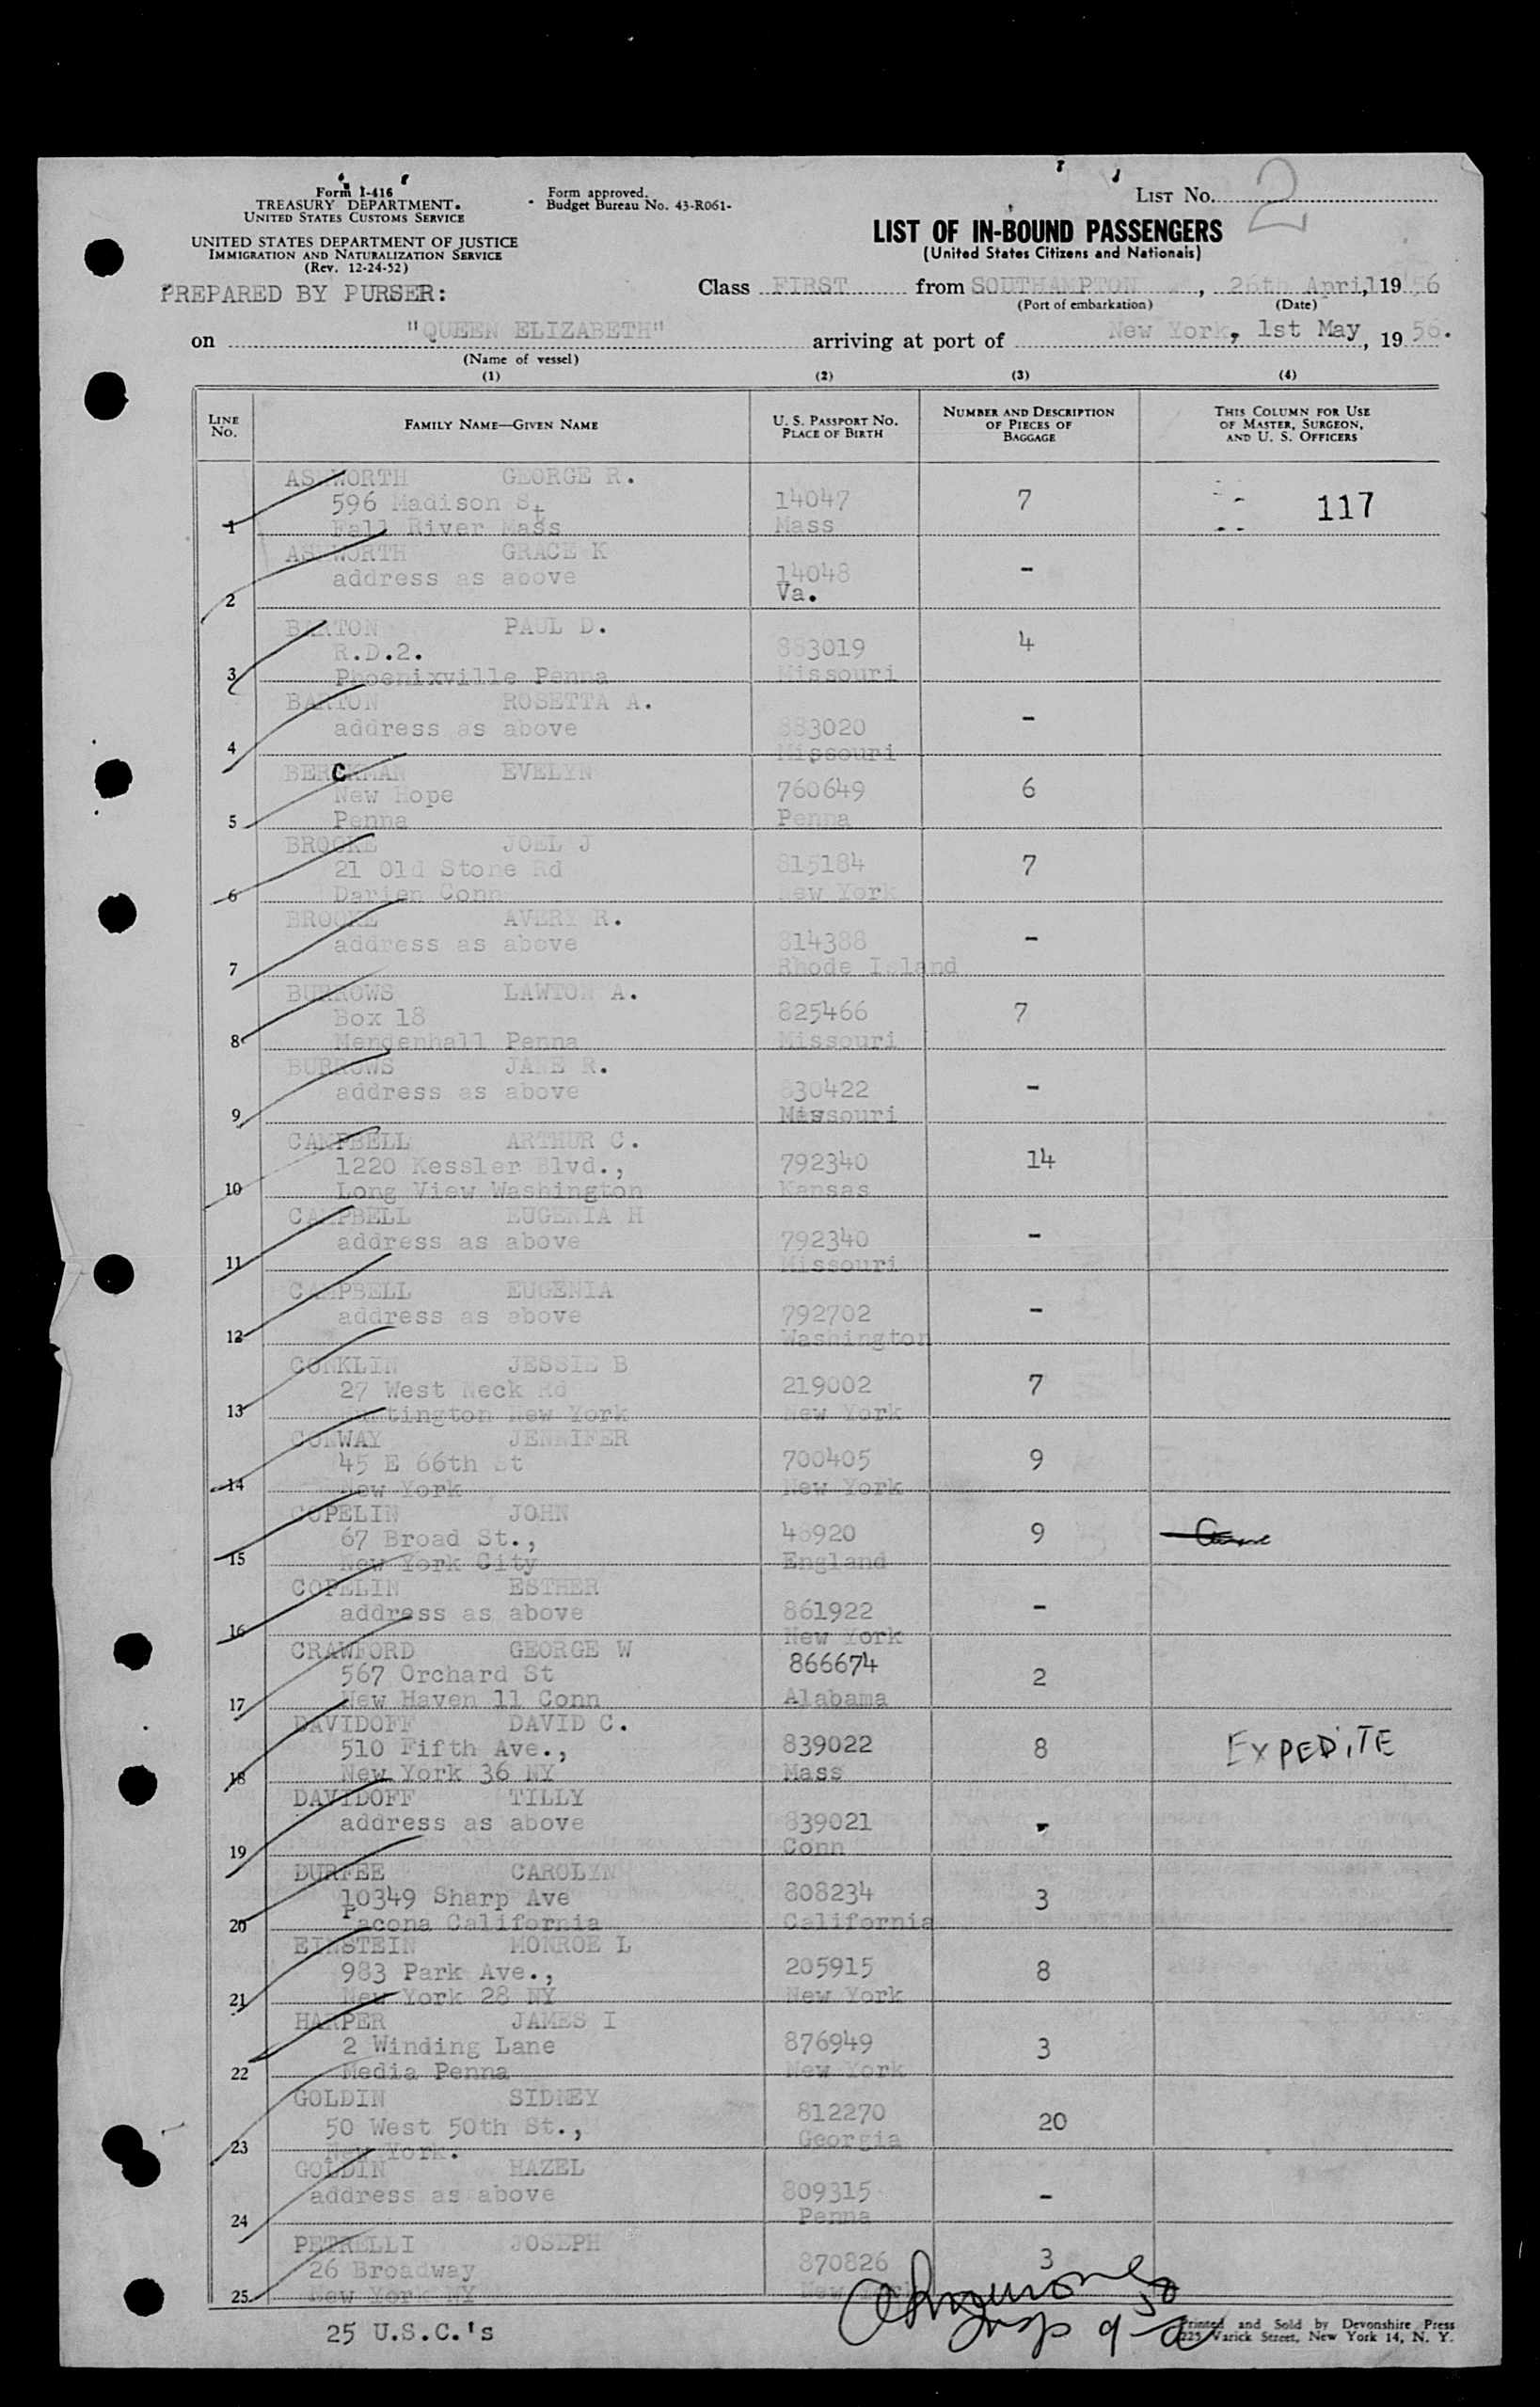 Form I-416
TREASURY DEPARTMENT.
UNITED STATES CUSTOMS SERVICE
UNITED STATES DEPARTMENT OF JUSTICE
IMMIGRATION AND NATURALIZATION SERVICE
(Rev. 12-24-52)
PREPARED BY PURSER:
Form approved.
Budget Bureau No. 43-R061-
LIST NO. 2
LIST OF IN-BOUND PASSENGERS
(United States Citizens and Nationals)
Class FIRST from SOUTHAMPTON, 26th April, 1956
(Port of embarkation) (Date)
on "QUEEN ELIZABETH" arriving at port of New York, 1st May, 1956.
(Name of vessel)
(1) (2) (3) (4)
LINE NO. FAMILY NAME—GIVEN NAME U. S. PASSPORT NO. PLACE OF BIRTH NUMBER AND DESCRIPTION OF PIECES OF BAGGAGE THIS COLUMN FOR USE OF MASTER, SURGEON, AND U. S. OFFICERS
ASHWORTH GEORGE R.
596 Madison St 14047 7 117
1 Fall River Mass Mass
ASHWORTH GRACE K
address as above 14048 -
2 Va.
BARTON PAUL D.
R.D.2. 883019 4
3 Phoenixville Penna Missouri
BARTON ROSETTA A.
address as above 883020 -
4 Missouri
BERCKMAN EVELYN
New Hope 760649 6
5 Penna Penna
BROOKE JOEL J
21 Old Stone Rd 815184 7
6 Darien Conn New York
BROOKE AVERY R.
address as above 814388 -
7 Rhode Island
BURROWS LAWTON A.
Box 18 825466 7
8 Mendenhall Penna Missouri
BURROWS JANE R.
address as above 830422 -
9 Missouri
CAMPBELL ARTHUR C.
1220 Kessler Blvd., 792340 14
10 Long View Washington Kansas
CAMPBELL EUGENIA H
address as above 792340 -
11 Missouri
CAMPBELL EUGENIA
address as above 792702 -
12 Washington
CONKLIN JESSIE B
27 West Neck Rd 219002 7
13 Huntington New York New York
CONWAY JENNIFER
45 E 66th St 700405 9
14 New York New York
COPELIN JOHN
67 Broad St., 48920 9
15 New York City England
COPELIN ESTHER
address as above 861922 -
16 New York
CRAWFORD GEORGE W 866674
567 Orchard St 2
17 New Haven 11 Conn Alabama
DAVIDOFF DAVID C.
510 Fifth Ave., 839022 8 EXPEDITE
18 New York 36 NY Mass
DAVIDOFF TILLY
address as above 839021 -
19 Conn
DURFEE CAROLYN
10349 Sharp Ave 808234 3
20 Pacona California California
EINSTEIN MONROE L
983 Park Ave., 205915 8
21 New York 28 NY New York
HARPER JAMES I
2 Winding Lane 876949 3
22 Media Penna New York
GOLDIN SIDNEY
50 West 50th St., 812270 20
23 New York. Georgia
GOLDIN HAZEL
address as above 809315 -
24 Penna
PETRELLI JOSEPH
26 Broadway 870826 3
25 New York NY New York
25 U.S.C.'s
Printed and Sold by Devonshire Press
225 Varick Street, New York 14, N. Y.